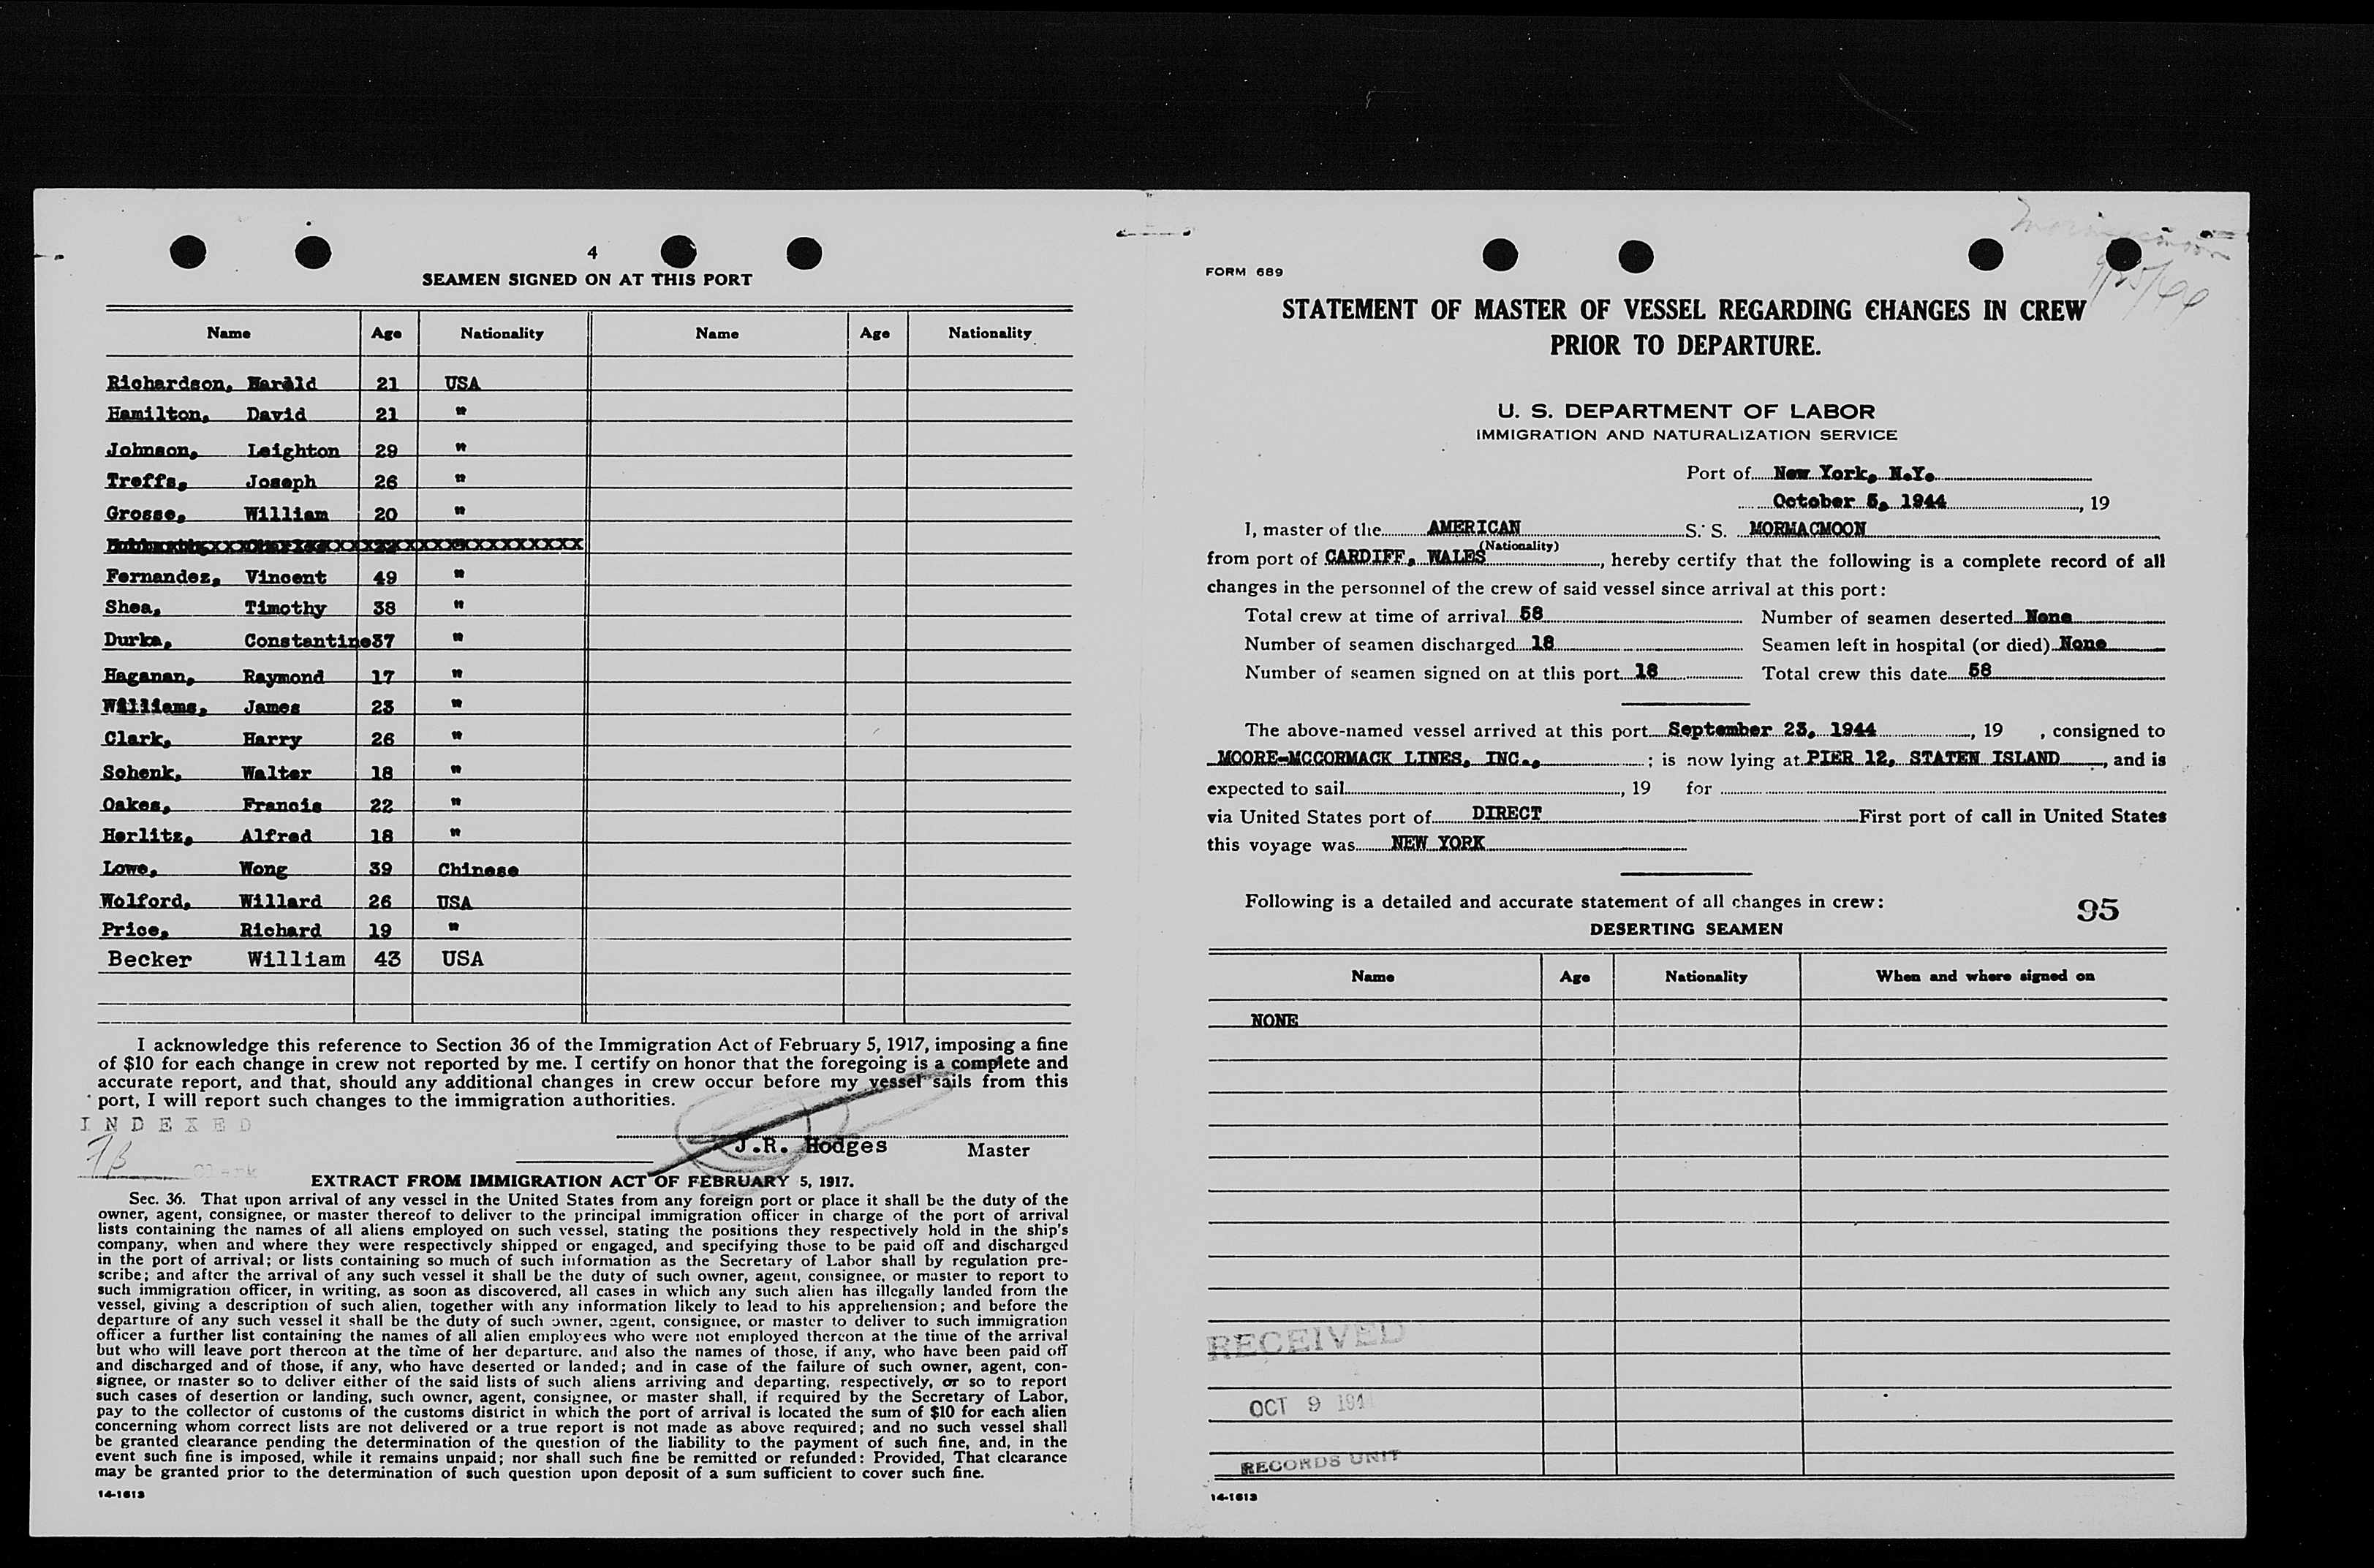 4
SEAMEN SIGNED ON AT THIS PORT
Name Age Nationality Name Age Nationality
Richardson, Harald 21 USA
Hamilton, David 21 "
Johnson, Leighton 29 "
Treffs, Joseph 26 "
Grosse, William 20 "
Fernandez, Vincent 49 "
Shea, Timothy 38 "
Durka, Constantine 37 "
Haganan, Raymond 17 "
Williams, James 23 "
Clark, Harry 26 "
Schenk, Walter 18 "
Oakes, Francis 22 "
Herlitz, Alfred 18 "
Lowe, Wong 39 Chinese
Wolford, Willard 26 USA
Price, Richard 19 "
Becker William 43 USA
I acknowledge this reference to Section 36 of the Immigration Act of February 5, 1917, imposing a fine
of $10 for each change in crew not reported by me. I certify on honor that the foregoing is a complete and
accurate report, and that, should any additional changes in crew occur before my vessel sails from this
port, I will report such changes to the immigration authorities.
INDEXED
J.R. Hodges Master
Clerk
EXTRACT FROM IMMIGRATION ACT OF FEBRUARY 5, 1917.
Sec. 36. That upon arrival of any vessel in the United States from any foreign port or place it shall be the duty of the
owner, agent, consignee, or master thereof to deliver to the principal immigration officer in charge of the port of arrival
lists containing the names of all aliens employed on such vessel, stating the positions they respectively hold in the ship's
company, when and where they were respectively shipped or engaged, and specifying those to be paid off and discharged
in the port of arrival; or lists containing so much of such information as the Secretary of Labor shall by regulation pre-
scribe; and after the arrival of any such vessel it shall be the duty of such owner, agent, consignee, or master to report to
such immigration officer, in writing, as soon as discovered, all cases in which any such alien has illegally landed from the
vessel, giving a description of such alien, together with any information likely to lead to his apprehension; and before the
departure of any such vessel it shall be the duty of such owner, agent, consignee, or master to deliver to such immigration
officer a further list containing the names of all alien employees who were not employed thereon at the time of the arrival
but who will leave port thereon at the time of her departure, and also the names of those, if any, who have been paid off
and discharged and of those, if any, who have deserted or landed; and in case of the failure of such owner, agent, con-
signee, or master so to deliver either of the said lists of such aliens arriving and departing, respectively, or so to report
such cases of desertion or landing, such owner, agent, consignee, or master shall, if required by the Secretary of Labor,
pay to the collector of customs of the customs district in which the port of arrival is located the sum of $10 for each alien
concerning whom correct lists are not delivered or a true report is not made as above required; and no such vessel shall
be granted clearance pending the determination of the question of the liability to the payment of such fine, and, in the
event such fine is imposed, while it remains unpaid; nor shall such fine be remitted or refunded: Provided, That clearance
may be granted prior to the determination of such question upon deposit of a sum sufficient to cover such fine.
14-1613
Mormacmoon
FORM 689
STATEMENT OF MASTER OF VESSEL REGARDING CHANGES IN CREW
PRIOR TO DEPARTURE.
U. S. DEPARTMENT OF LABOR
IMMIGRATION AND NATURALIZATION SERVICE
Port of New York, N.Y.
October 5, 1944, 19
I, master of the AMERICAN S. S. MORMACMOON
(Nationality)
from port of CARDIFF, WALES, hereby certify that the following is a complete record of all
changes in the personnel of the crew of said vessel since arrival at this port:
Total crew at time of arrival 58 Number of seamen deserted None
Number of seamen discharged 18 Seamen left in hospital (or died) None
Number of seamen signed on at this port 18 Total crew this date 58
The above-named vessel arrived at this port September 23, 1944, 19 , consigned to
MOORE-MCCORMACK LINES, INC., ; is now lying at PIER 12, STATEN ISLAND, and is
expected to sail, 19 for
via United States port of DIRECT First port of call in United States
this voyage was NEW YORK
Following is a detailed and accurate statement of all changes in crew:
95
DESERTING SEAMEN
Name Age Nationality When and where signed on
NONE
RECEIVED
OCT 9 1944
RECORDS UNIT
14-1613